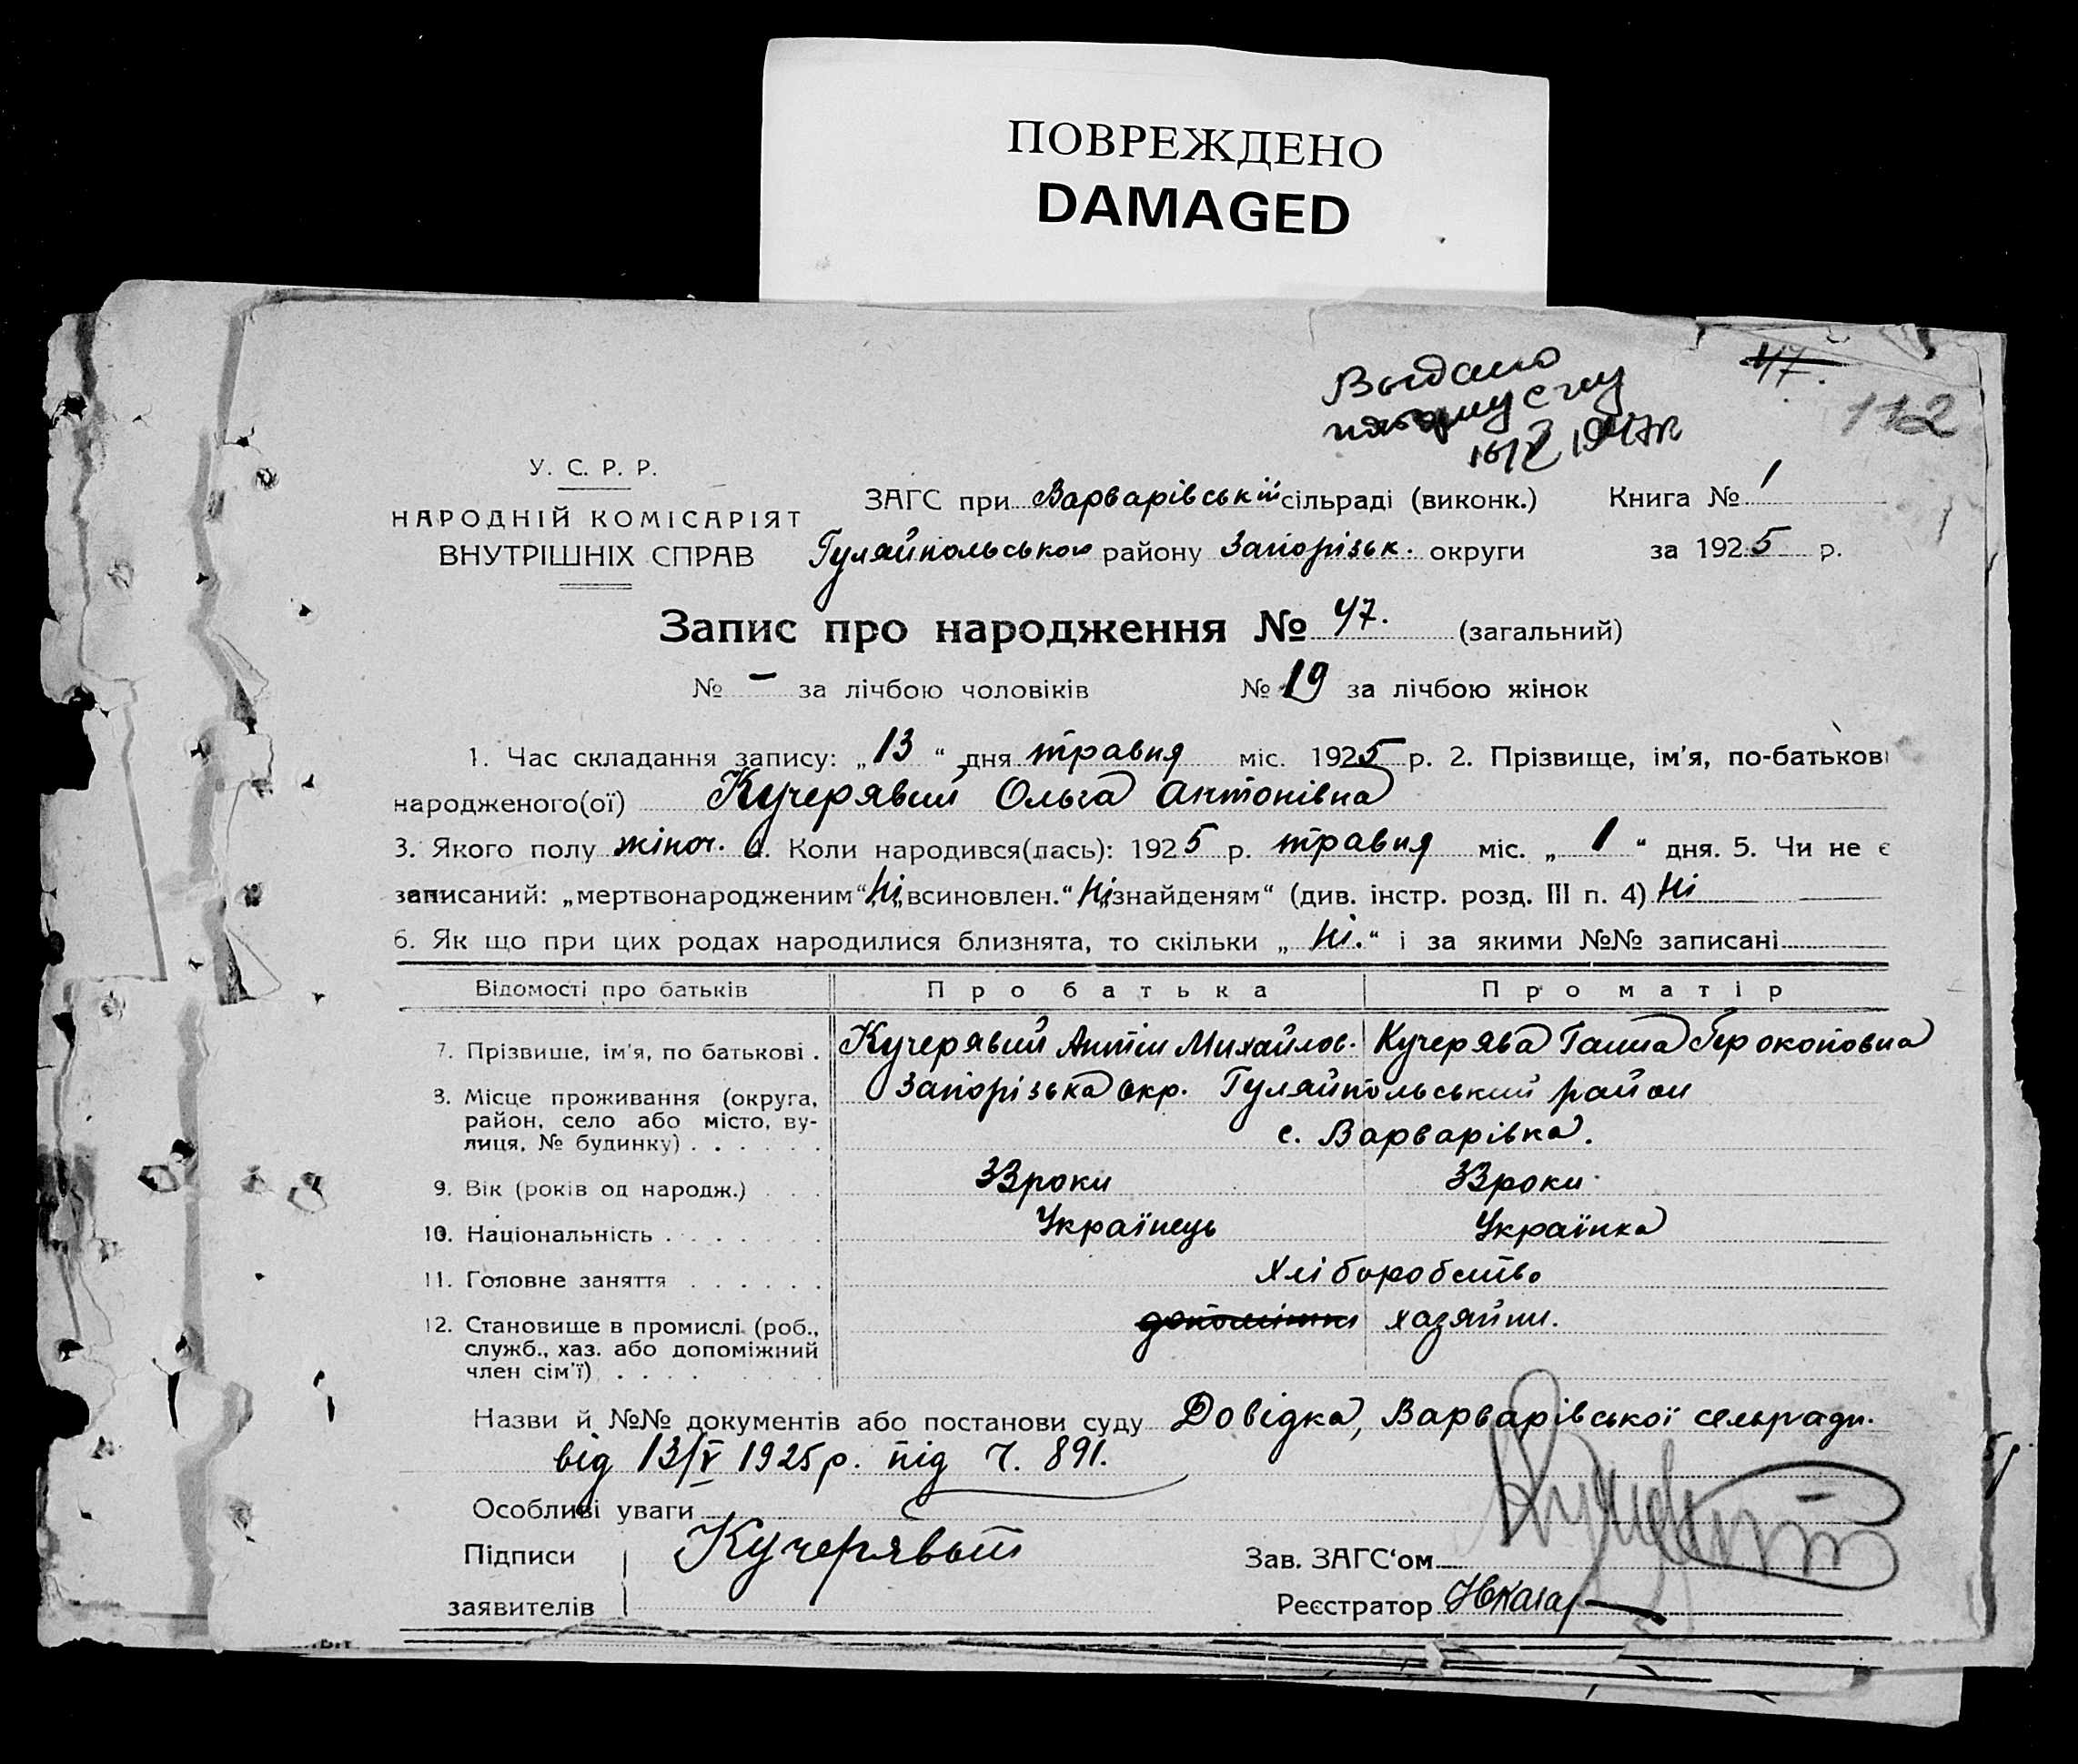 ПОВРЕЖДЕНО
DAMAGED
Выдано
16/V 1947к
47.
112
У. С. Р. Р.
НАРОДНІЙ КОМІСАРІЯТ
ВНУТРІШНІХ СПРАВ
ЗАГС при Варварівській сільраді (виконк.) Книга № 1
Гуляйпольського району Запорізьк. округи за 1925 р.
Запис про народження № 47. (загальний)
№ – за лічбою чоловіків № 19 за лічбою жінок
1. Час складання запису: „13“ дня травня міс. 1925 р. 2. Прізвище, ім'я, по-батькові
народженого(ої) Кучерявий Ольга Антонівна
3. Якого полу жіноч. 4. Коли народився(лась): 1925 р. травня міс. „1“ дня. 5. Чи не є
записаний: „мертвонародженим“ Ні „всиновлен.“ Ні „знайденям“ (див. інстр. розд. III п. 4) Ні
6. Як що при цих родах народилися близнята, то скільки „Ні.“ і за якими №№ записані
Відомості про батьків Про батька Про матір
7. Прізвище, ім'я, по батькові . Кучерявий Антін Михайлов. Кучерява Ганна Прокоповна
8. Місце проживання (округа, Запорізька окр. Гуляйпольський район
район, село або місто, ву-
лиця, № будинку) . . . . . . с. Варварівка.
9. Вік (років од народж.) . . . 33 роки 33 роки
10. Національність . . . . . Українець Українка
11. Головне заняття . . . . . . Хліборобство
12. Становище в промислі (роб., хазяйни.
служб., хаз. або допоміжний
член сім'ї) . . . . . . . .
Назви й №№ документів або постанови суду Довідка, Варварівської сельради.
від 13/V 1925р. під Ч. 891.
Особливі уваги
Підписи Кучерявый Зав. ЗАГС'ом
заявителів Реєстратор
5 р.